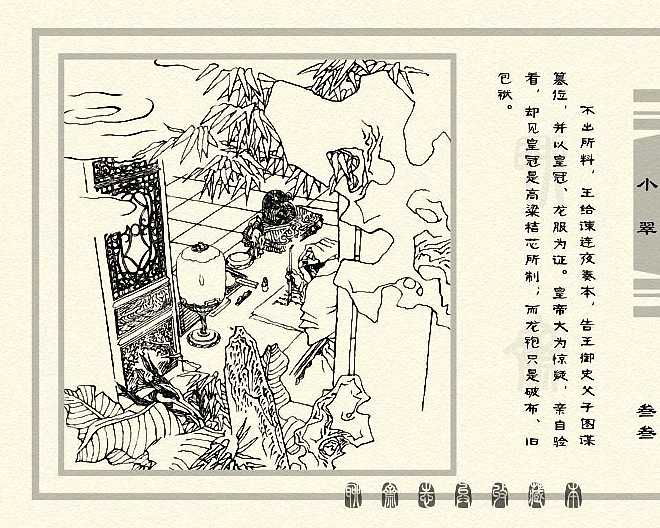 不出所料，王给谏连夜奏本，告王御史父子图谋
篡位，并以皇冠、龙服为证。皇帝大为惊疑，亲自验
看，却见皇冠是高粱秸芯所制；而龙袍只是破布、旧
包袱。
小翠
叁叁
聊斋志异收藏本